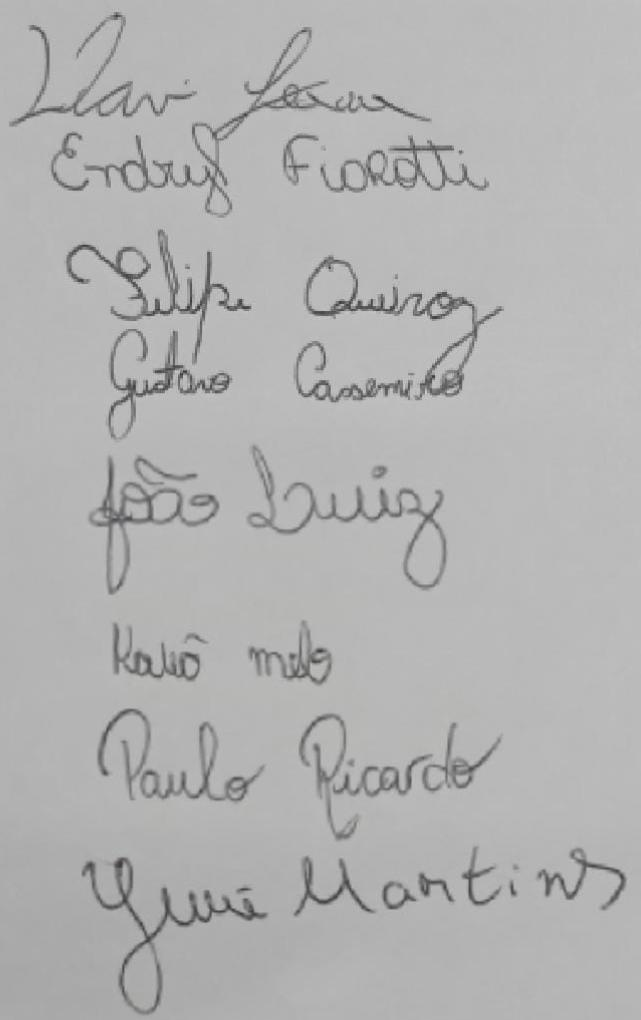 Endryl Fiorotti
Filipe Queiroz
Gustavo Cassemiro
João Luiz
melo
Paulo Ricardo
Yuri Martins